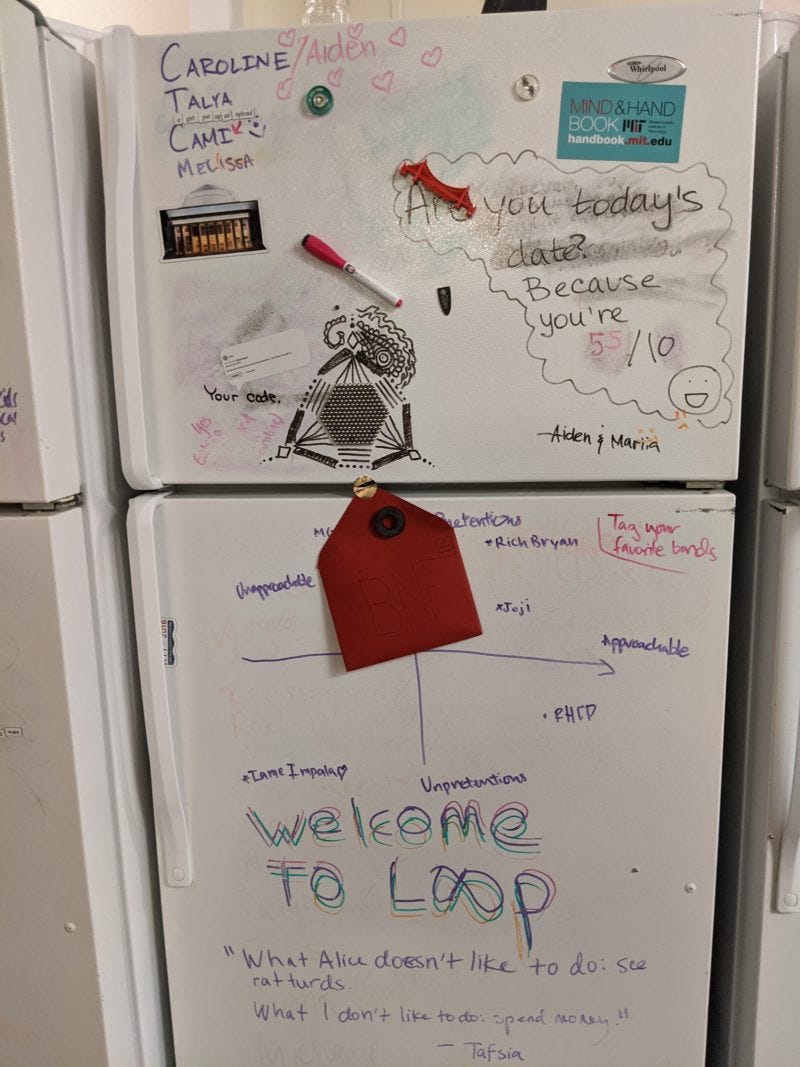 CAROLINE/Aiden
TALYA
CAMI
MELISSA
Whirlpool
MIND & HAND
BOOK MIT
handbook.mit.edu
Are you today's
date?
Because
you're
55/10
Your code.
Aiden & Mariia
Pretentious
*Rich Bryan
Tag your
favorite bands
Unapproachable
BMF
*Joji
Approachable
2016
• RHCP
*Tame Impala
Unpretentious
WELCOME
TO LOOP
"What Alice doesn't like to do: see
rat turds.
What I don't like to do: spend money."
- Tafsia